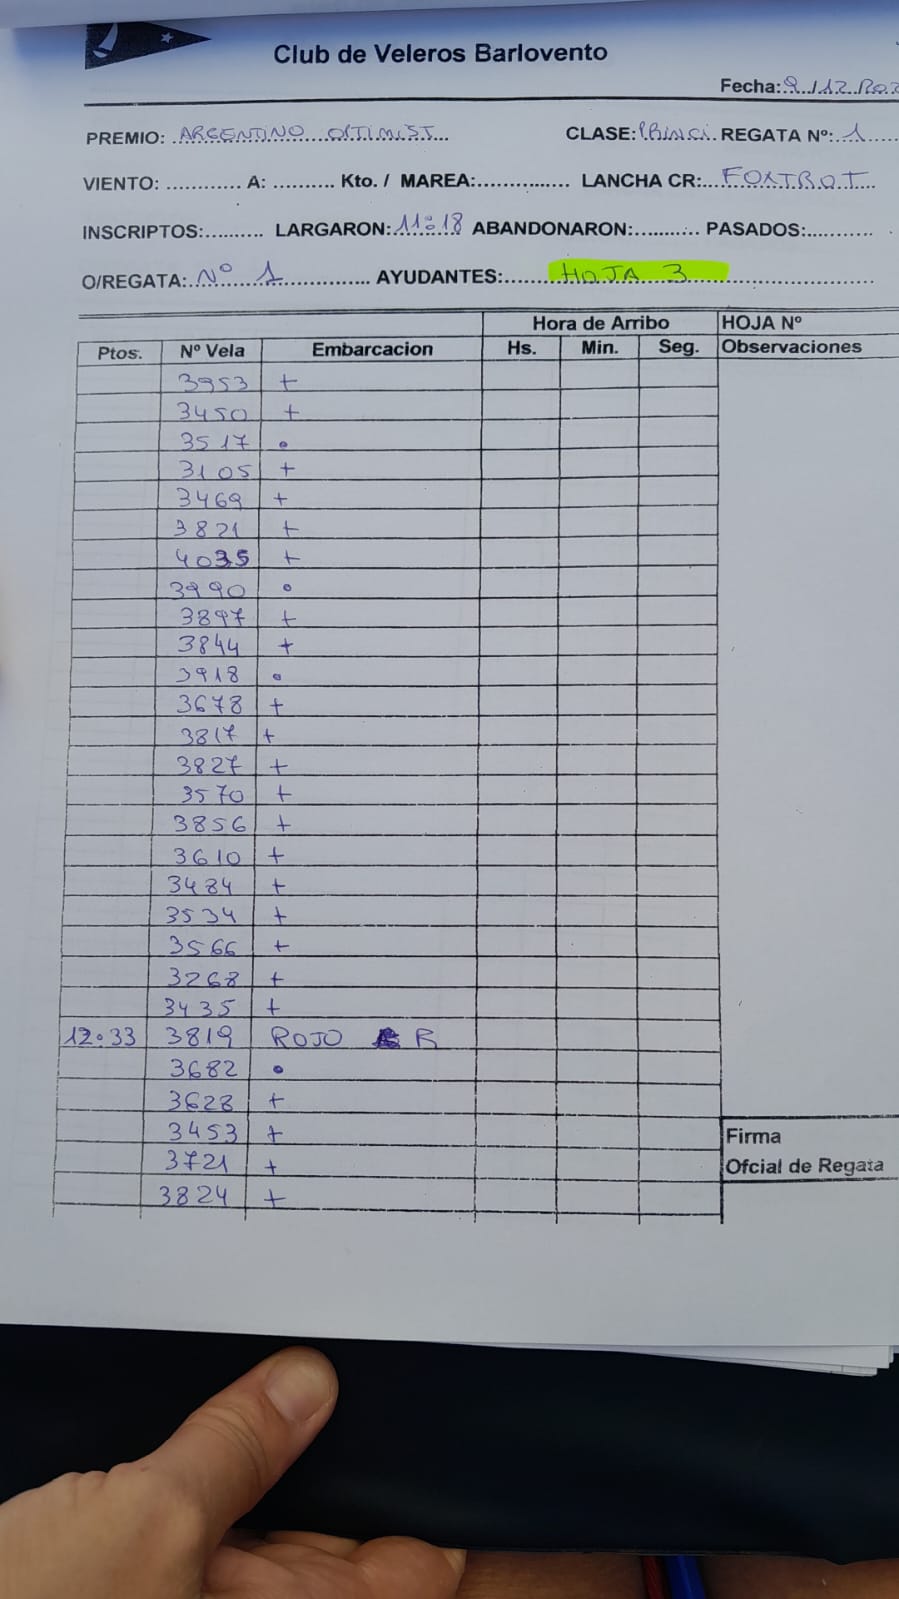 Club de Veleros Barlovento
Fecha: 9./12.
PREMIO: ARGENTINO OPTIMIST CLASE: PRINCI. REGATA Nº: 1
VIENTO: ............ A: .......... Kto. / MAREA:............... LANCHA CR: FOXTROT
INSCRIPTOS:.......... LARGARON: 11:18 ABANDONARON:........... PASADOS:...........
O/REGATA: Nº 1 AYUDANTES: HOJA 3
Hora de Arribo HOJA Nº
Ptos. Nº Vela Embarcacion Hs. Min. Seg. Observaciones
3953 +
3450 +
3517 •
3105 +
3469 +
3821 +
4035 +
3990 •
3897 +
3844 +
3918 •
3678 +
3817 +
3827 +
3570 +
3856 +
3610 +
3484 +
3534 +
3566 +
3268 +
3435 +
12:33 3819 ROJO R
3682 •
3628 +
3453 +
3721 +
3824 +
Firma
Ofcial de Regata